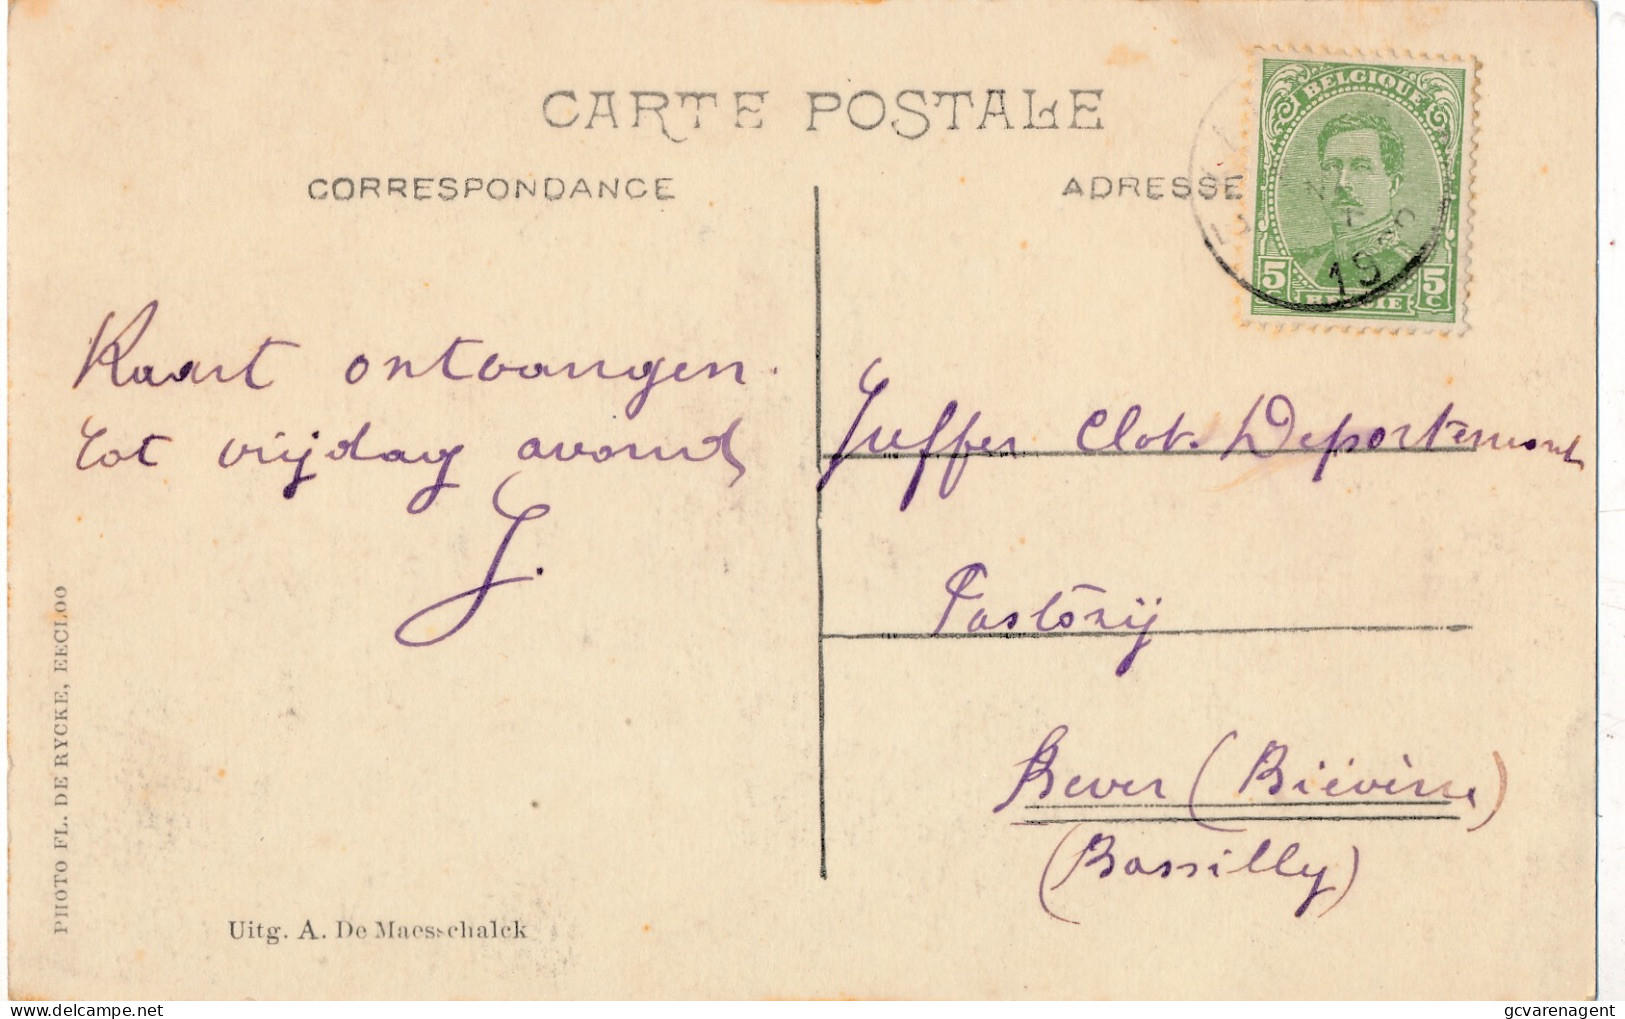 CARTE POSTALE
CORRESPONDANCE
ADRESSE
BELGIQUE
5 C 5 C
BELGIE
19
Kaart ontvangen.
tot vrijdag avond
J.
Juffer Clot. Deportemont
Pastorij
Bever (Biévène)
(Bassilly)
PHOTO FL. DE RYCKE, EECLOO
Uitg. A. De Maesschalck
gcvarenagent